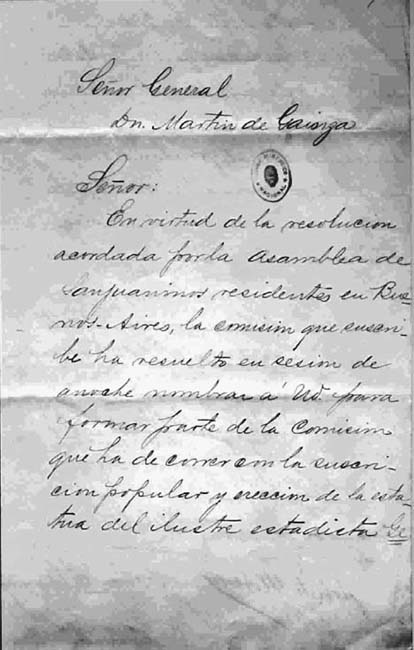 Señor General
Dn. Martin de Gainza
MUSEO HISTORICO NACIONAL
Señor:
En virtud de la resolucion
acordada por la asamblea de
Sanjuaninos residentes en Bue
nos-Aires, la comision que suscri-
be ha resuelto en sesion de
anoche nombrar á Ud. para
formar parte de la comision
que ha de correr con la suscri-
cion popular y ereccion de la está-
tua del ilustre estadista Ge